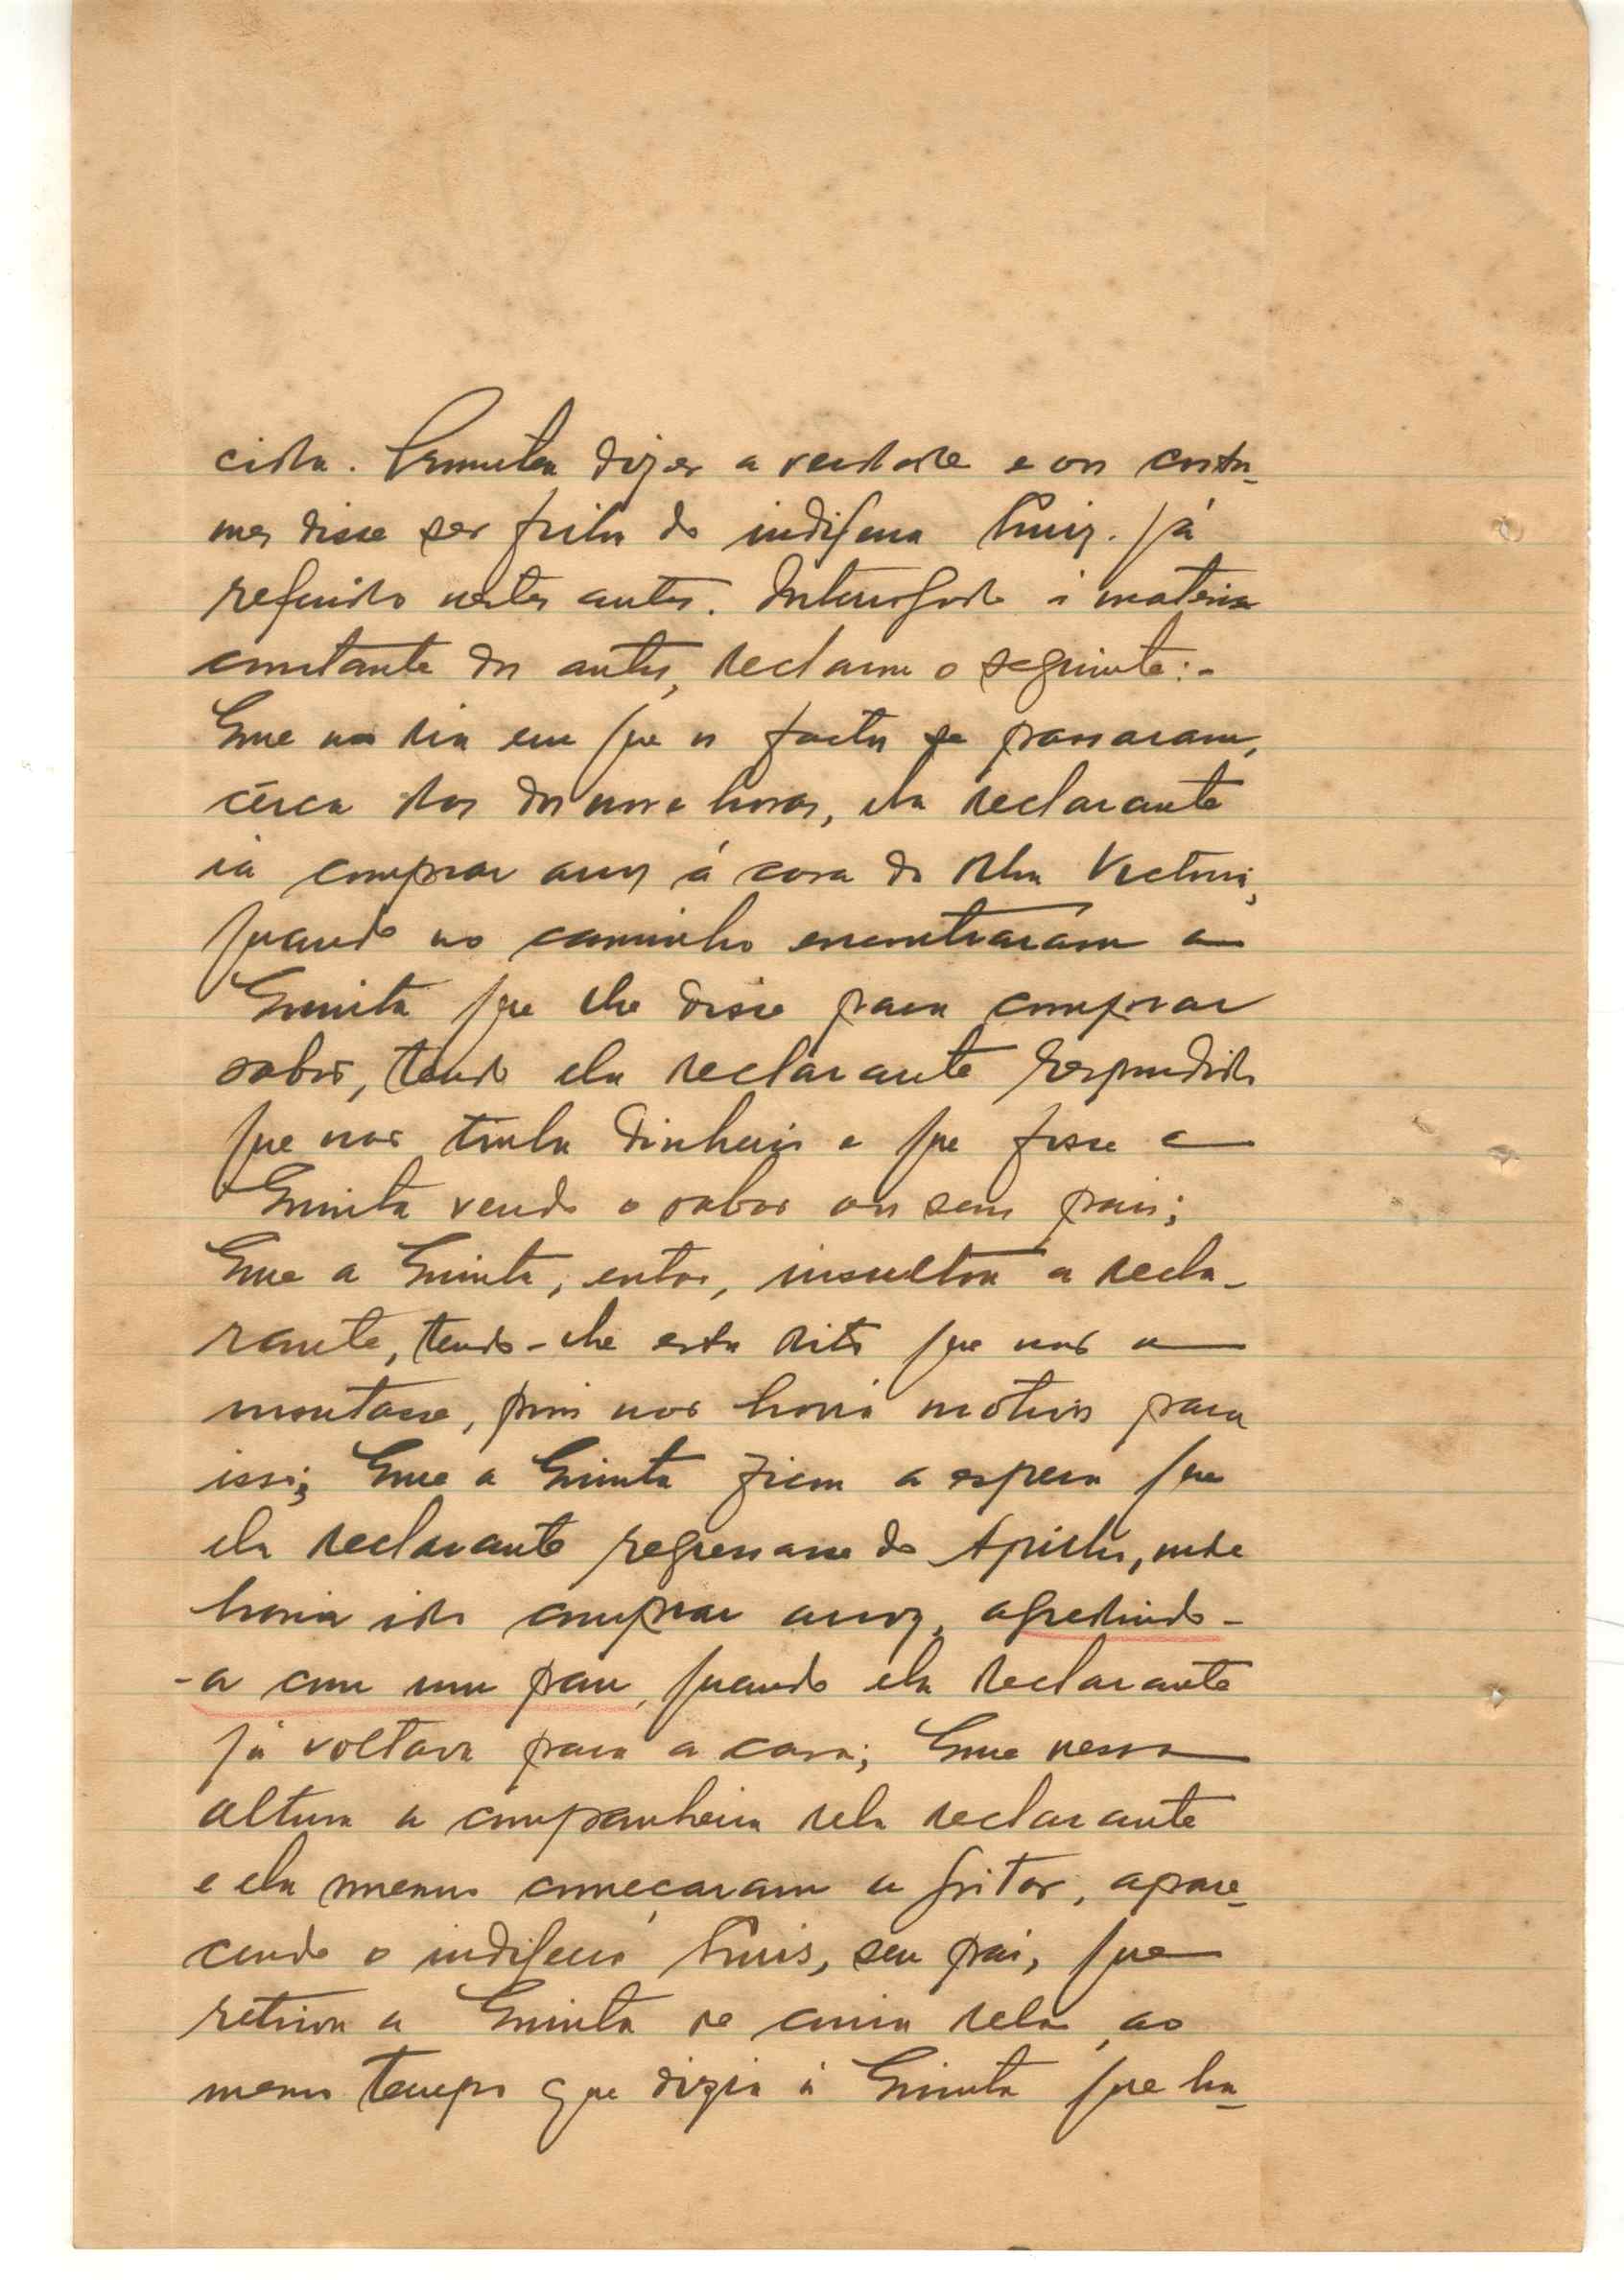 cida. Prometeu dizer a verdade e aos costu-
mes disse ser filha do indígena Luiz. já
referido nestes autos. Interrogada á matéria
constante dos autos, declarou o seguinte:-
Que no dia em que os factos se passaram,
cêrca das dezanove horas, ela declarante
ia comprar arroz á casa do Victori,
quando no caminho encontraram a
Quinita que lhe disse para comprar
sabão, tendo ela declarante respondido
que não tinha dinheiro e que fosse a
Quinita vender o sabão aos seus pais;
Que a Quinita, então, insultou a decla-
rante, tendo-lhe esta dito que não a
insultasse, pois não havia motivos para
isso; Que a Quinita ficou a espera que
ela declarante regressasse do onde
havia ido comprar arroz, agredindo-
-a com um pau, quando ela declarante
já voltava para a casa; Que nessa
altura a companheira dela declarante
e ela mesma começaram a gritar, apare-
cendo o indígena Luis, seu pai, que
retirou a Quinita de cima dela, ao
mesmo tempo que dizia á Quinita que ha-